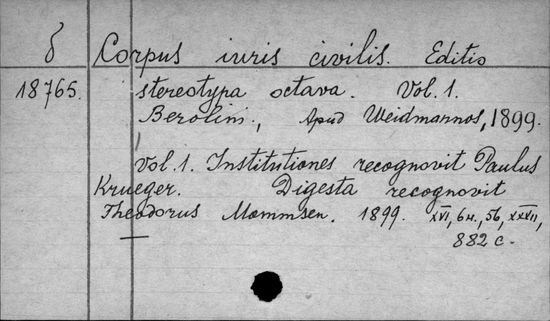 δ Corpus iuris civilis. Editio
18765. stereotypa octava. Vol. 1.
Berolini, Apud Weidmannos, 1899.
Vol. 1. Institutiones recognovit Paulus
Krueger. Digesta recognovit
Theodorus Mommsen. 1899. XVI, 6н., 56, XXXII,
882 с.